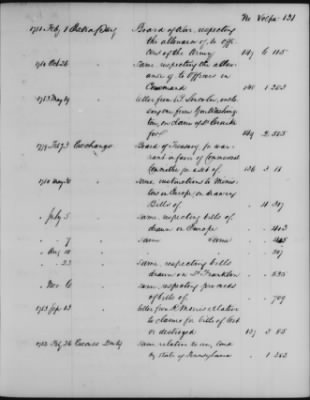 No Vol pa 131
1781 Feby 1 Board of War, respecting
the allowance of, to offi
cers of the Army 147 6 115
1780 Oct 26 same respecting the allow
ance of to Officers in
Command 148 1 263
1783 May 19 letter from
from Gen Washing
ton, on claim of
for 149 2
1779 Feb 3 Exchange Board of Treasury, for war
rant in favor of Commercial
Committee, for a set of 136 3 11
1780 May 30 " same, instructions to Minis
ters in Europe, on drawing
Bills of " 11 307
" July 5 " same, respecting bills of
drawn on Europe " " 402
" " 7 " same same " "
" Aug 10 " " " 507
" " 23 " same, respecting bills
drawn on Dr Franklin " " 535
" Nov 6 " same, respecting proceeds
of bills of " " 709
1783 Sep 13 " letter from R Morris relative
to claims for bills of lost
or destroyed 137 3 85
1782 Feby 26 same relative to an, laid
by State of Pennsylvania " 1 363